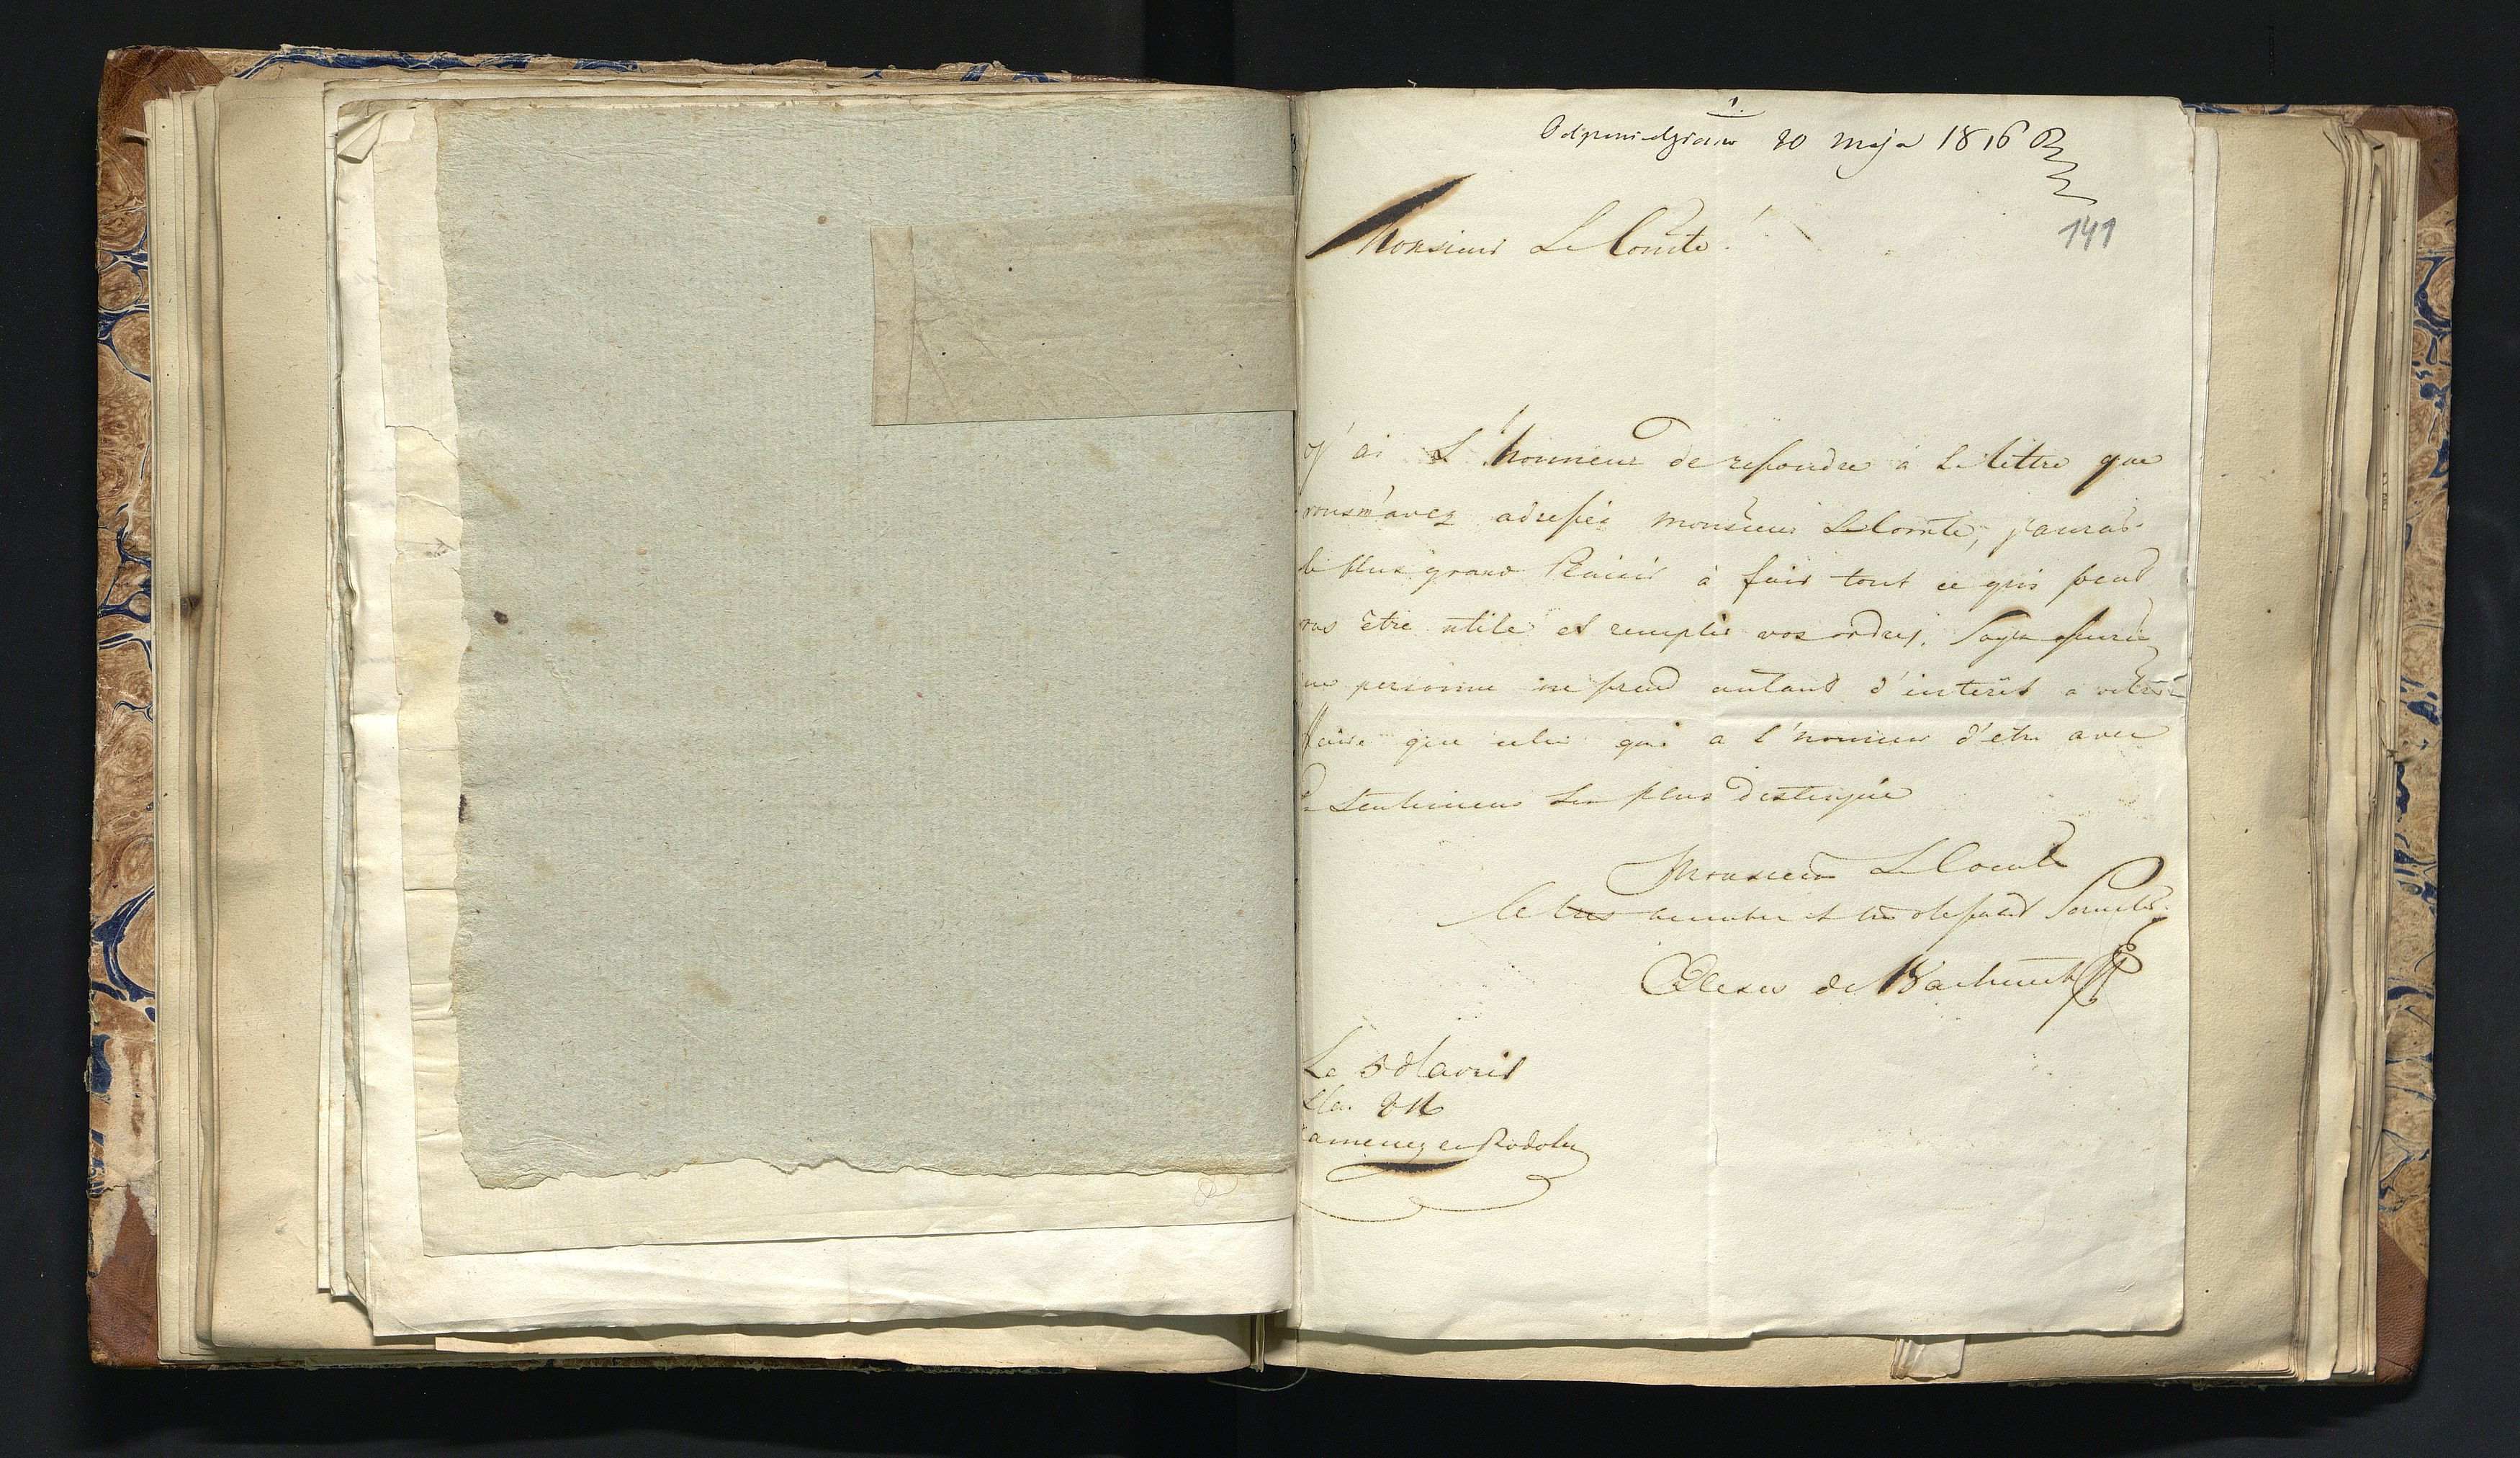 1.
Odpowiedziano 20 maja 1816
141
Monsieur Le Comte!
J'ai L'honneur de repondre a La lettre que
vous m'avez adressée monsieur Le Comte, j'aurais
le plus grand Plaisir à fair tout ce qui peut
vous être utile et remplir vos ordres. Soyez
que personne ne prend autant d'interêt a votre
affaire que celui qui a l'honneur d'etre avec
Les sentiment les plus destinguée
Monsieur Le Comte
le tres humble et tres obeissant
de
Le 5 d'avril
816
Kamenez en Podolie